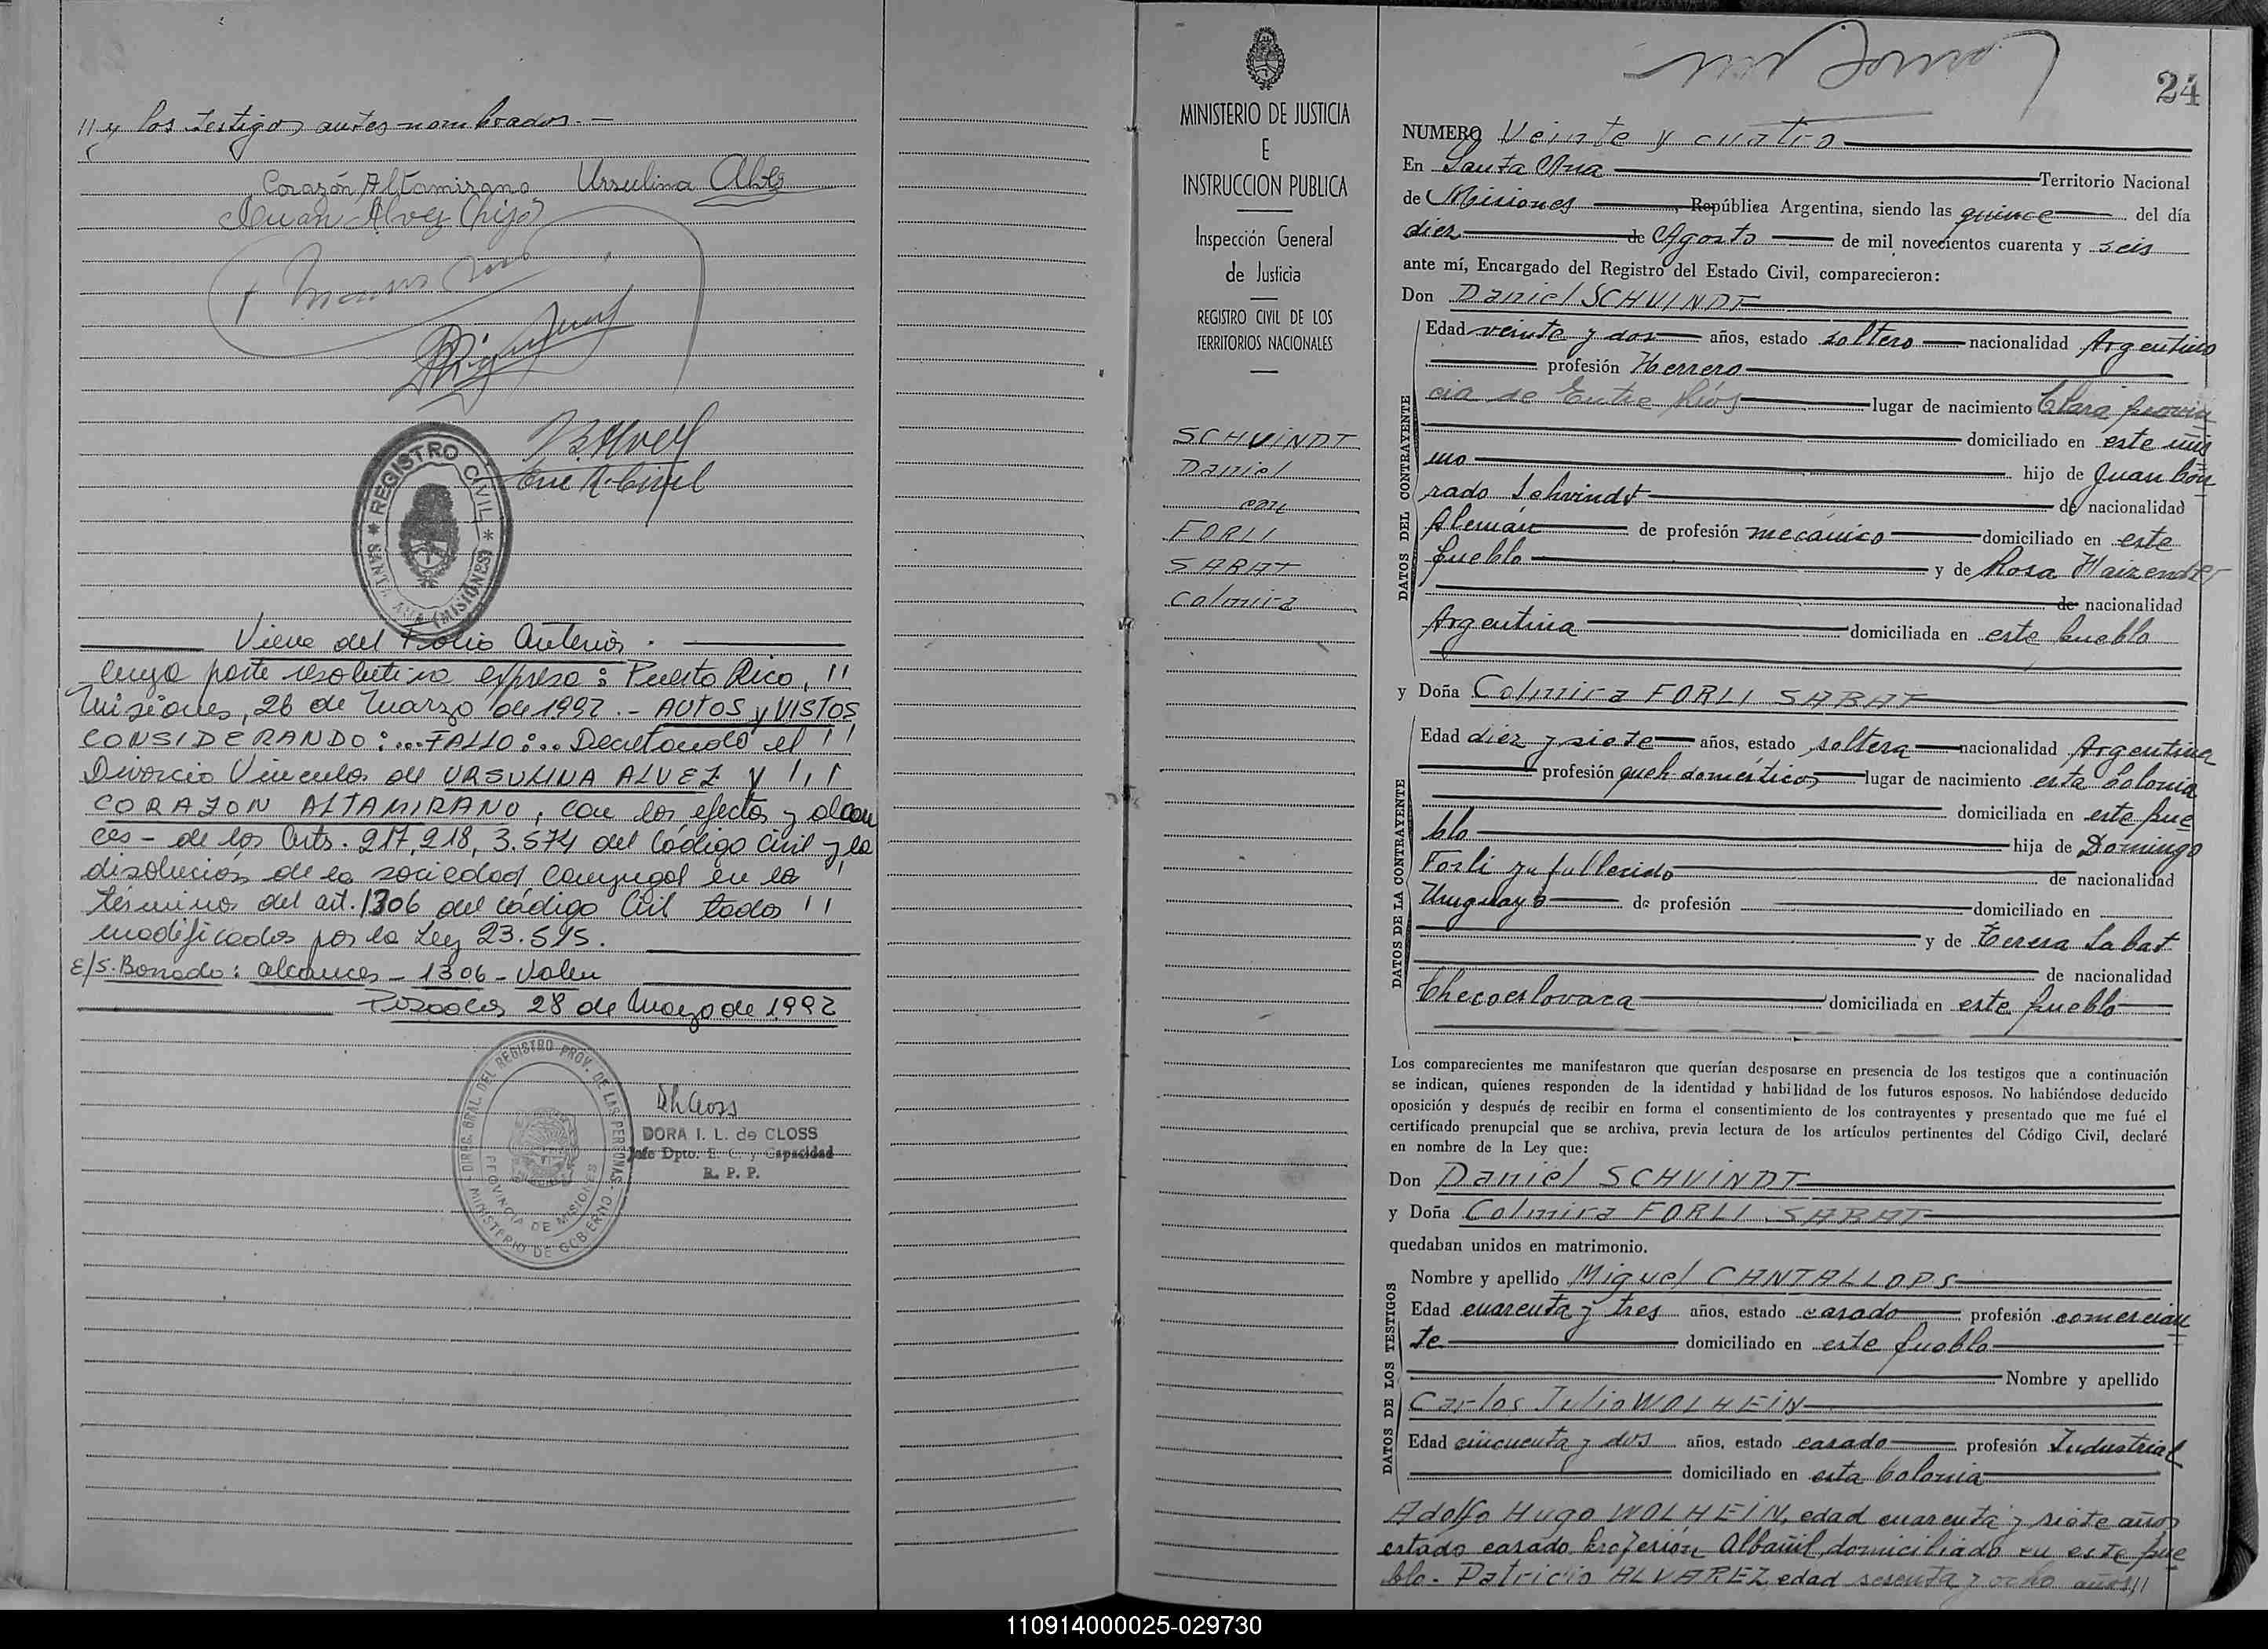 // y los testigos antes nombrados.—
Corazón Altamirano Ursulina Alvez
Juan Alvez (hijo)
B. Alvez
* REGISTRO CIVIL *
SANTA ANA (MISIONES)
Viene del Folio Anterior.
cuya parte resolutiva expresa: Puerto Rico, //
Misiones, 26 de Marzo de 1992.- AUTOS y VISTOS
CONSIDERANDO:...FALLO:... Decretando el //
Divorcio Vincular de URSULINA ALVEZ y //
CORAZON ALTAMIRANO, con los efectos y alcan
ces - de los Arts. 217, 218, 3.574 del Código Civil y la
disolución de la sociedad conyugal en los
términos del art. 1306 del código Civil todos //
modificados por la Ley 23.515.
E/S. Borrado: alcances - 1306 - Valen
Posadas 28 de Mayo de 1992
DIREC. GRAL. DEL REGISTRO PROV. DE LAS PERSONAS
PROVINCIA DE MISIONES
MINISTERIO DE GOBIERNO
DORA I. L. de CLOSS
Jefe Dpto. E. C. y Capacidad
R. P. P.
MINISTERIO DE JUSTICIA
E
INSTRUCCION PUBLICA
Inspección General
de Justicia
REGISTRO CIVIL DE LOS
TERRITORIOS NACIONALES
SCHVINDT
Daniel
con
FORLI
SABAT
Colmira
24
NUMERO Veinte y cuatro
En Santa Ana Territorio Nacional
de Misiones, República Argentina, siendo las quince del día
diez de Agosto de mil novecientos cuarenta y seis
ante mí, Encargado del Registro del Estado Civil, comparecieron:
Don Daniel SCHVINDT
DATOS DEL CONTRAYENTE
Edad veinte y dos años, estado soltero nacionalidad Argentino
profesión Herrero
lugar de nacimiento Clara provin
cia de Entre Ríos
domiciliado en este mis
mo hijo de Juan Con
rado Schvindt de nacionalidad
Alemán de profesión mecánico domiciliado en este
pueblo y de Rosa
de nacionalidad
Argentina domiciliada en este pueblo
y Doña Colmira FORLI SABAT
DATOS DE LA CONTRAYENTE
Edad diez y siete años, estado soltera nacionalidad Argentina
profesión queh. domésticos lugar de nacimiento esta Colonia
domiciliada en este pue
blo hija de Domingo
Forli ya fallecido de nacionalidad
Uruguayo de profesión domiciliado en
y de Teresa Sabat
de nacionalidad
Checoeslovaca domiciliada en este pueblo
Los comparecientes me manifestaron que querían desposarse en presencia de los testigos que a continuación
se indican, quienes responden de la identidad y habilidad de los futuros esposos. No habiéndose deducido
oposición y después de recibir en forma el consentimiento de los contrayentes y presentado que me fué el
certificado prenupcial que se archiva, previa lectura de los artículos pertinentes del Código Civil, declaré
en nombre de la Ley que:
Don Daniel SCHVINDT
y Doña Colmira FORLI SABAT
quedaban unidos en matrimonio.
DATOS DE LOS TESTIGOS
Nombre y apellido Miguel CANTALLOPS
Edad cuarenta y tres años, estado casado profesión comercian
te domiciliado en este pueblo
Nombre y apellido
Carlos Julio WOLHEIN
Edad cincuenta y dos años, estado casado profesión Industrial
domiciliado en esta Colonia
Adolfo Hugo WOLHEIN, edad cuarenta y siete años
estado casado profesión Albañil, domiciliado en este pue
blo.- Patricio ALVAREZ edad sesenta y ocho años //
110914000025-029730